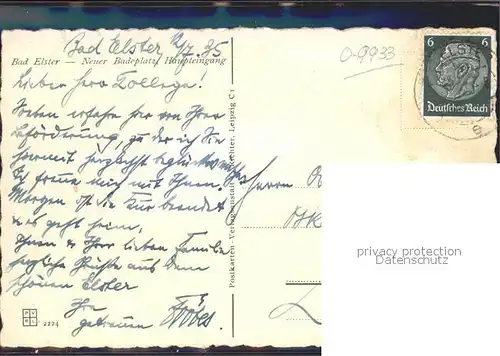 Bad Elster, 12/7.35
Bad Elster — Neuer Badeplatz, Haupteingang
Lieber Herr Kollege!
Soeben erfahre ich von Ihrer
Beförderung, zu der ich Sie
hiermit herzlichst beglückwünsche
Ich freue mich mit Ihnen.
Morgen ist die Kur beendet
& es geht heim,
Ihnen & Ihrer lieben Familie
herzliche Grüße aus dem
schönen Elster
Ihr
getreuer
2274
Postkarten-Verlagsanstalt Richter, Leipzig C1
Herrn
0-9933
6 6
Deutsches Reich
privacy protection
Datenschutz